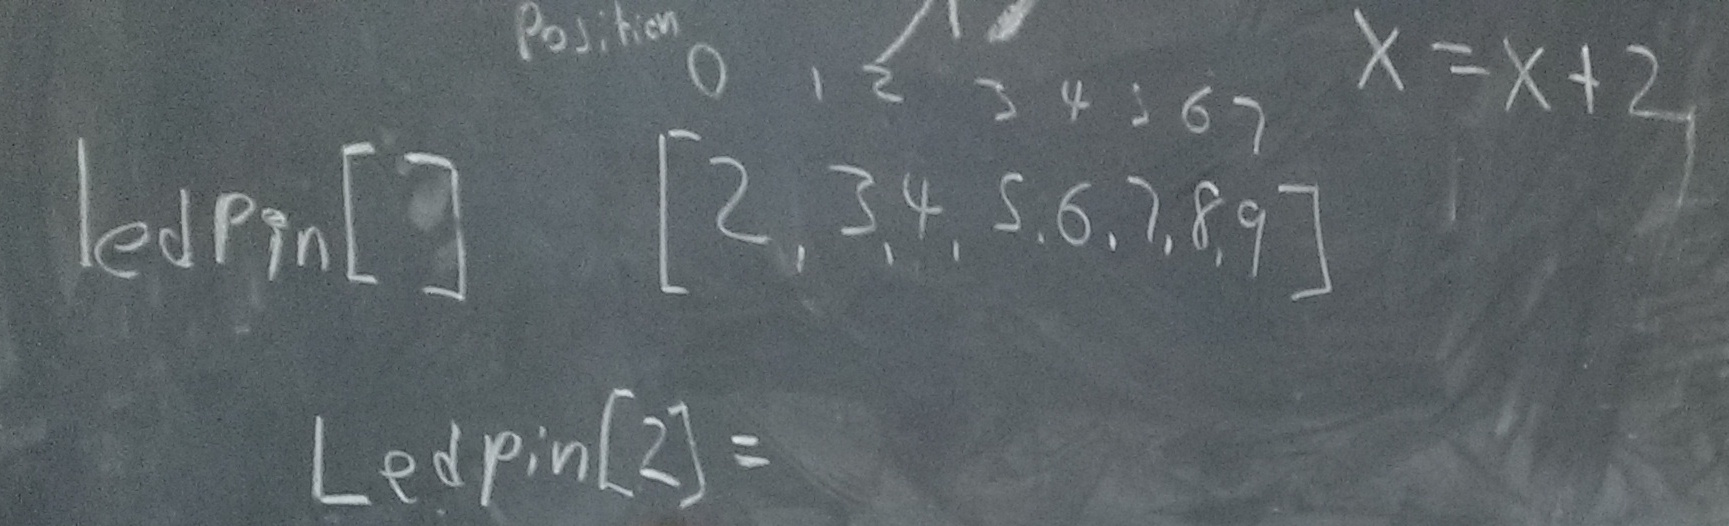 Position 0 1 2 3 4 5 6 7
X = X + 2
ledpin[ ] [2, 3, 4, 5, 6, 7, 8, 9]
Ledpin[2] =